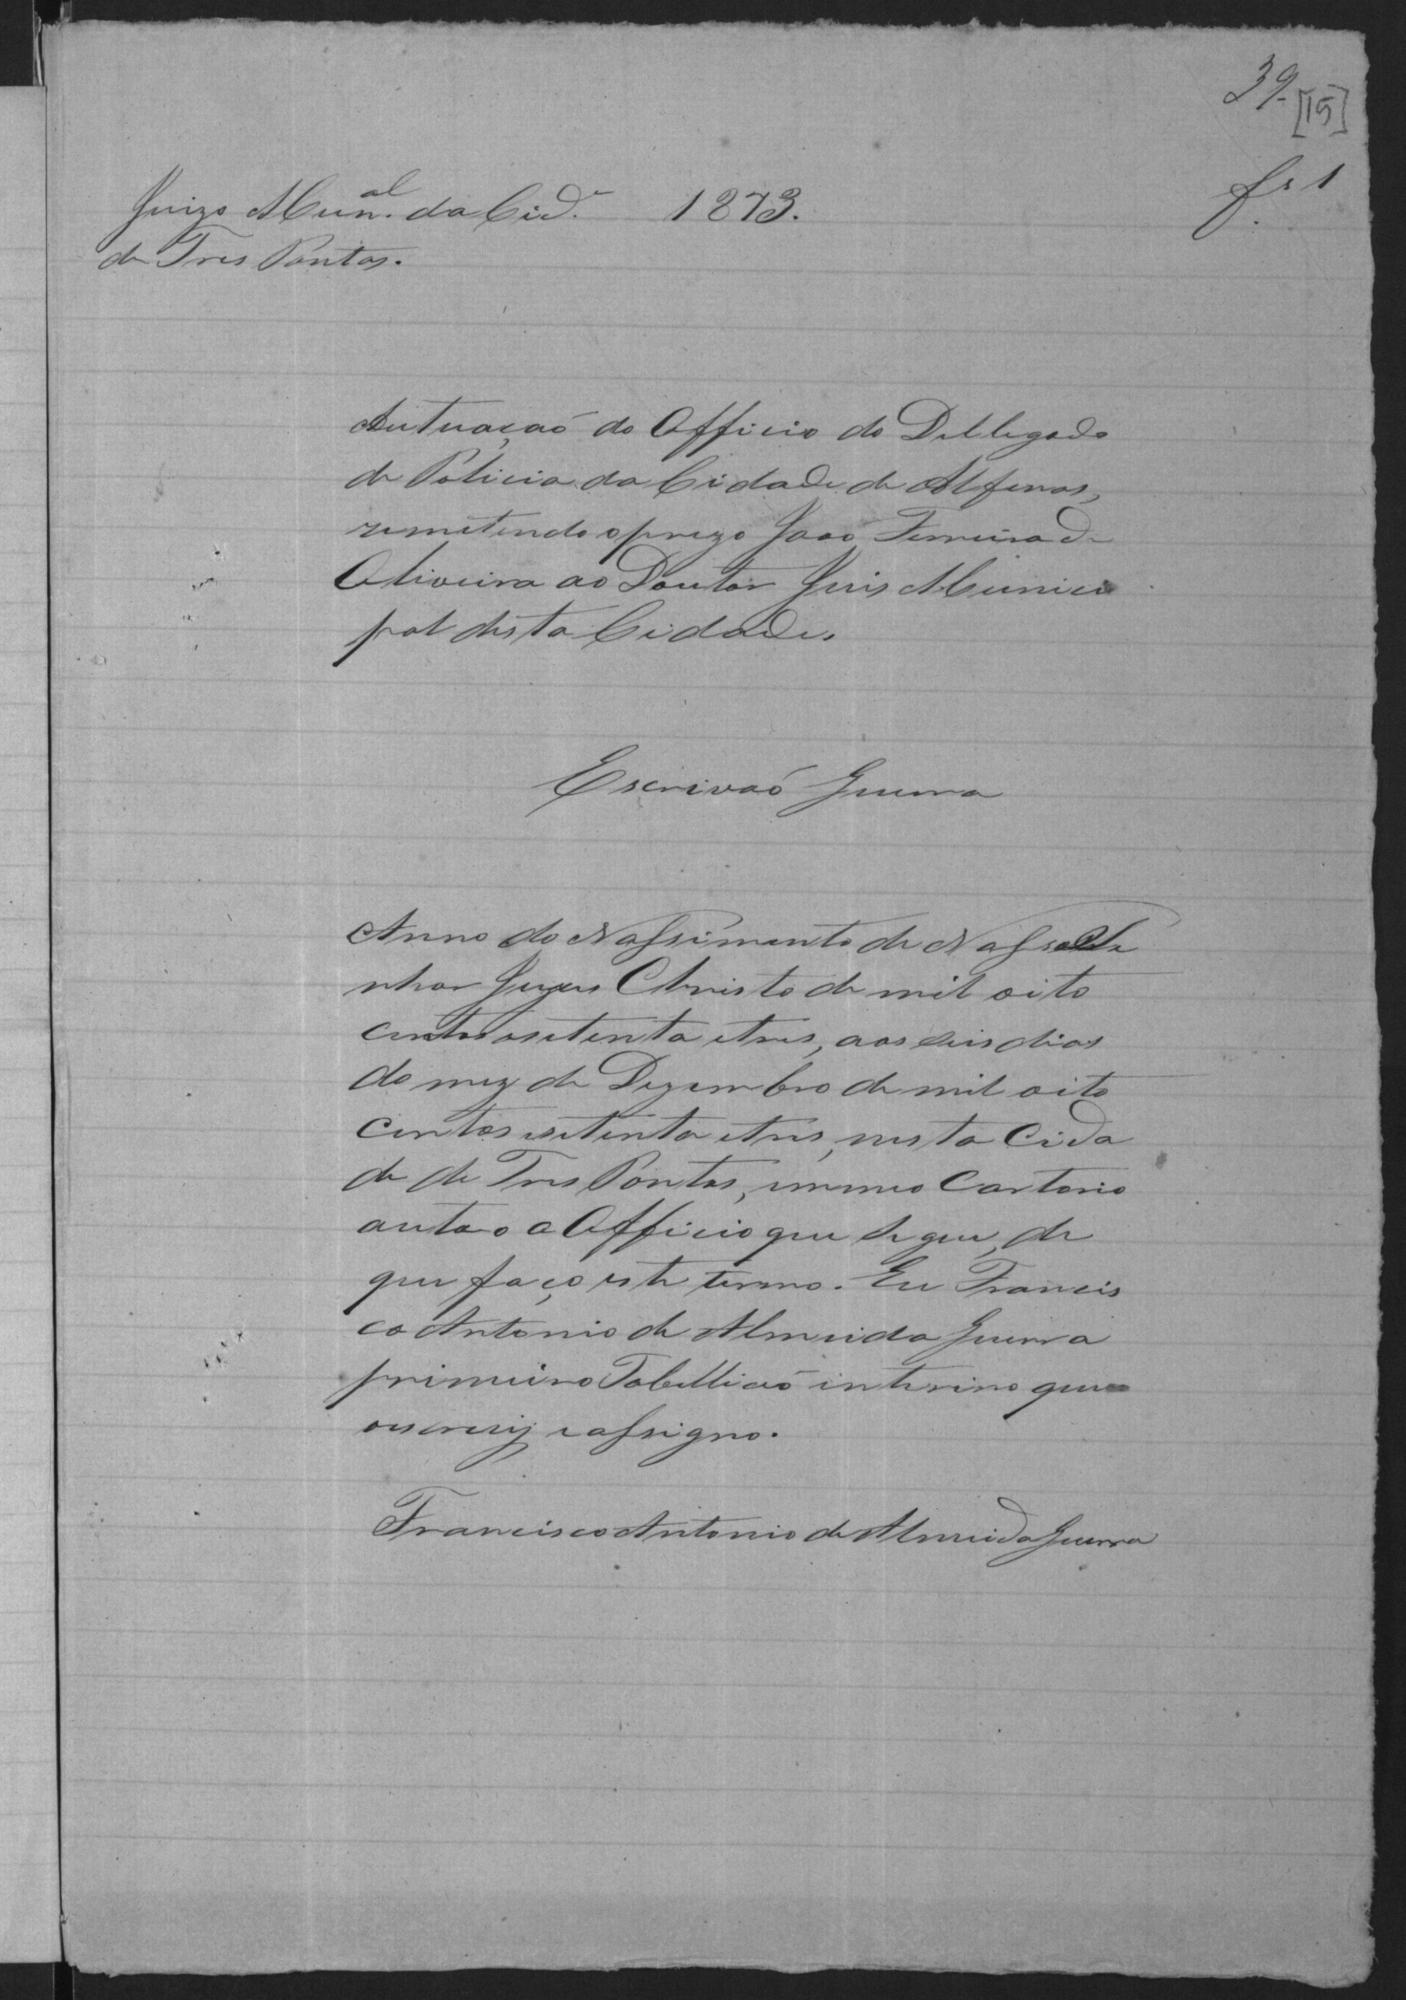 39
[15]
fs 1
Juizo Mun.al da Cid.e 1873.
de Tres Pontas.
Autuaçaõ do Officio do Dellegado
de Policia da Cidade de Alfenas,
remetendo o prezo Joaõ Ferreira de
Oliveira ao Doutor Juis Munici
pal desta Cidade.
Escrivaõ Guerra
Anno do Nassimento de Nosso Se
nhor Jezus Christo de mil oito
centos e setenta e tres, aos seis dias
do mez de Dezembro de mil oito
centos e setenta e tres, nesta Cida
de de Tres Pontas, em meo Cartorio
autoo o Officio que segue, de
que faço este termo. Eu Francis
co Antonio de Almeida Guerra
primeiro Tabelliaõ interino que
o escrevy e assigno.
Francisco Antonio de Almeida Guerra